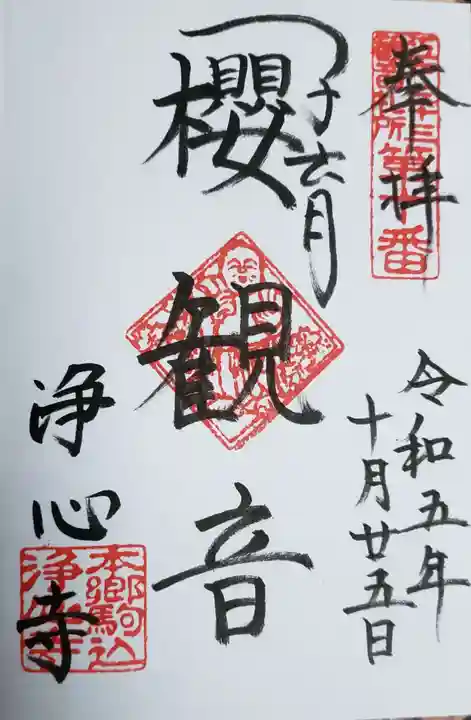 奉拝
令和五年
十月廿五日
子育
櫻観音
浄心寺
本郷駒込
浄心寺